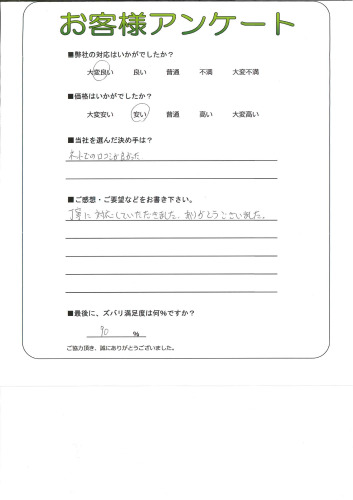 お客様アンケート
■弊社の対応はいかがでしたか？
大変良い 良い 普通 不満 大変不満
■価格はいかがでしたか？
大変安い 安い 普通 高い 大変高い
■当社を選んだ決め手は？
ネットでの口コミが良かった
■ご感想・ご要望などをお書き下さい。
丁寧に対応していただきました。ありがとうございました。
■最後に、ズバリ満足度は何％ですか？
90 ％
ご協力頂き、誠にありがとうございました。